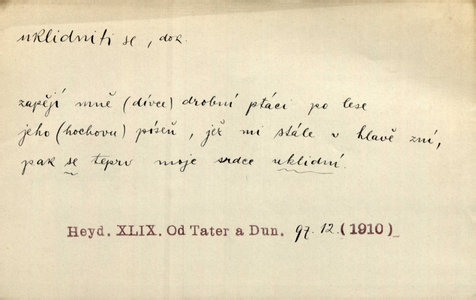 uklidniti se, dok.
zapějí mně (dívce) drobní ptáci po lese
jeho (hochovu) píseň, jež mi stále v hlavě zní,
pak se teprv moje srdce uklidní.
Heyd. XLIX. Od Tater a Dun. 97. 12. (1910)